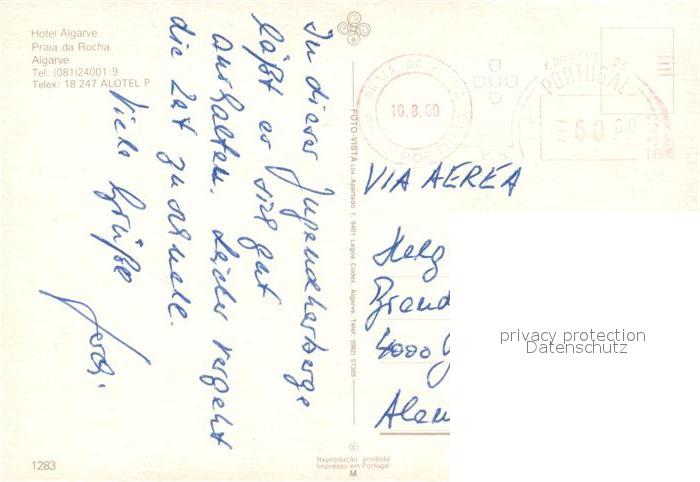 Hotel Algarve
Praia da Rocha
Algarve
Tel: (081)24001/9
Telex: 18 247 ALOTEL P
In dieser Jugendherberge
läßt es sich gut
aushalten. Leider vergeht
die Zeit zu schnell.
Viele Grüße
Ferdi
1283
FOTO-VISTA Lda. Apartado 1, 8401 Lagoa Codex, Algarve, Telef: (082) 57365
PRAIA DA
10.8.80
PORTUGAL
CORREIO DE
PORTUGAL
60
VIA AEREA
Herg
Brand
4000
Alem
privacy protection
Datenschutz
©
Reprodução proibida
Impresso em Portugal
M